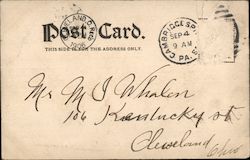 Post Card.
THIS SIDE IS FOR THE ADDRESS ONLY.
CAMBRIDGE SP
SEP 4
9 AM
PA.
Mr M J Whalen
106 Kentucky st
Cleveland
Ohio